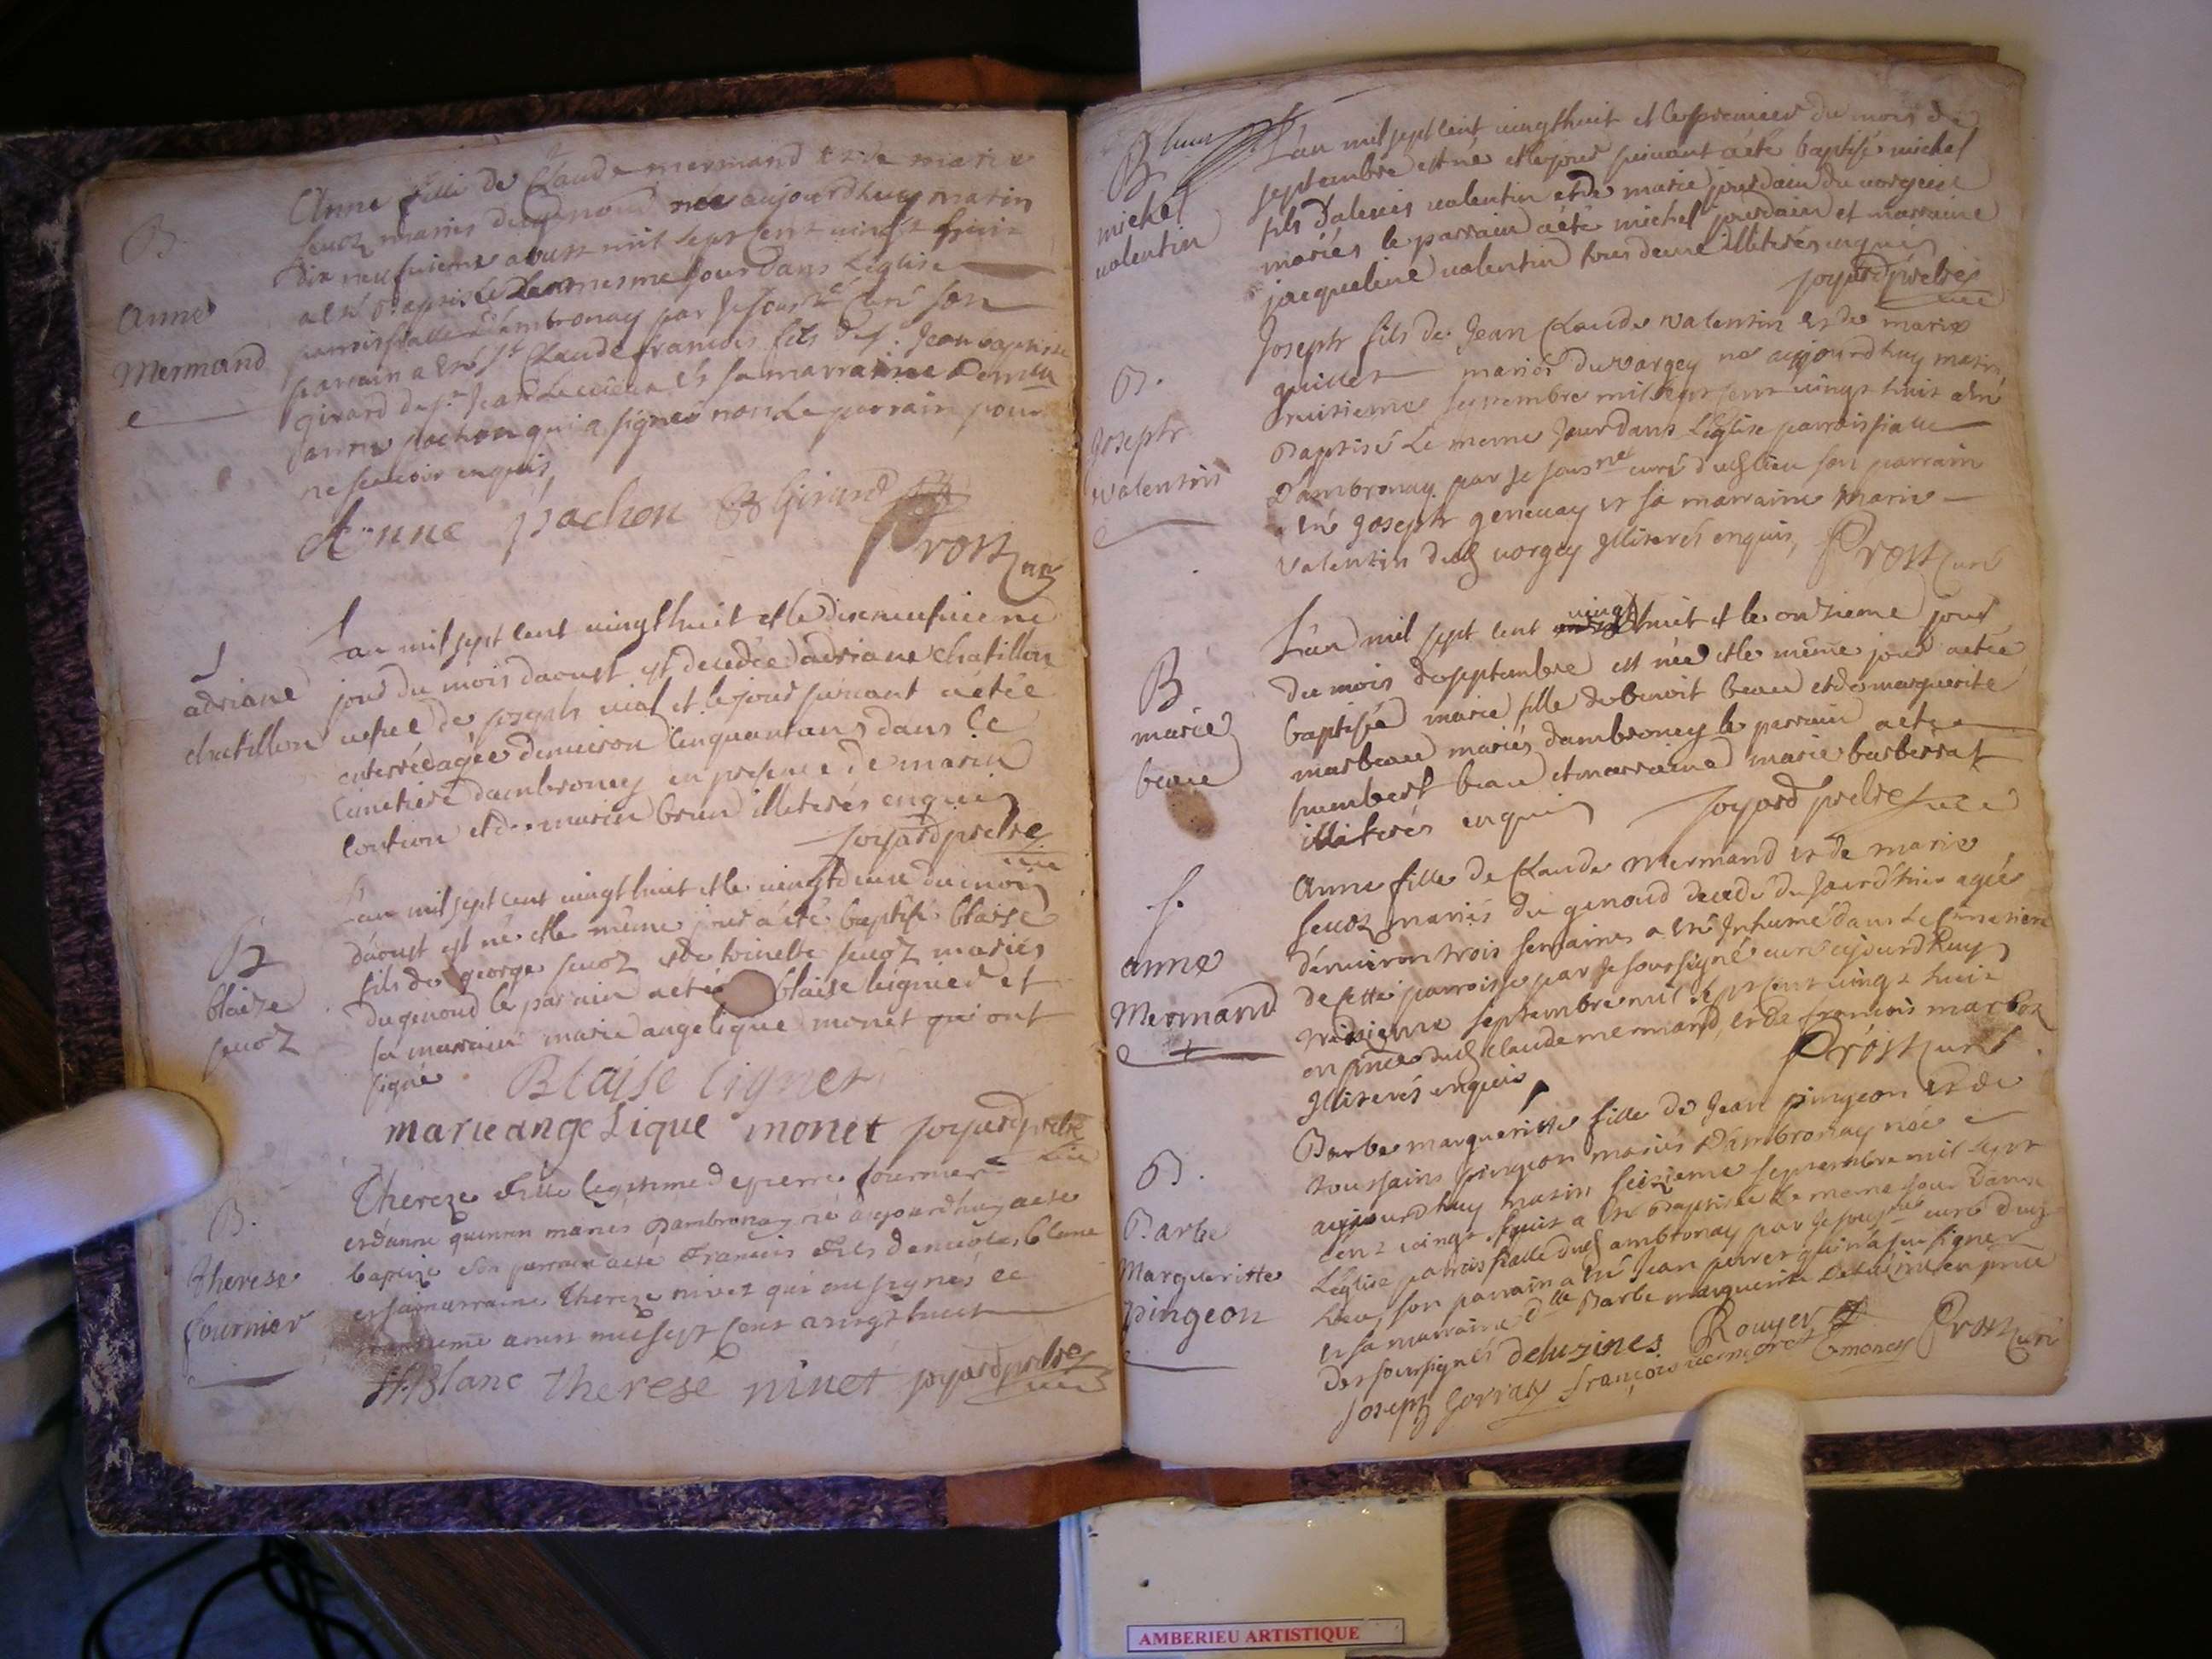 B.
Anne
Mermand
Anne fille de Claude mermand et de marie
seuoz mariés du genoud née aujourdhuy matin
dix neufuieme aoust mil sept cent uingt huit
a été baptisée le mesme jour dans l'eglise
parroissialle d'ambronay par je sous né curé son
parrain a été Sr Claude francois fils de Sr Jean baptiste
girard de St Jean le uieux et sa marraine Demlle
anne pachon qui a signé non le parrain pour
ne scauoir enquis
Anne pachon Girard
Prost curé
S
adriane
chatillon
Lan mil sept cent uingt huit et le dixneufuieme
jour du mois daoust est decedée adriane chatillon
uefue de joseph uial et le jour suiuant a etée
enterrée agée denuiron cinquante ans dans le
Cimetiere dambronay en presence de marin
et de marin brun illiterés enquis
joyard prebstre
uic
B
blaize
seuoz
Lan mil sept cent uingt huit et le uingt deux du mois
daoust est né et le même jour a été baptisé blaise
fils de george seuoz et de toinette seuoz mariés
du genoud le parrain a eté blaise lignier et
sa marraine marie angelique monet qui ont
signé
Blaise ligner
marie angelique monet joyard prebstre
uic
B.
therese
fournier
Thereze fille legitime de pierre fournier
et danne mariés dambronay né aujourdhuy a ete
baptize son parrain a esté francois fils de nicolas blanc
et sa marraine thereze nivet qui ont signés ce
aoust mil sept cent uingt huit
f Blanc therese ninet joyard prebstre
uic
B
michel
ualentin
L'an mil sept cent uingt huit et le premier du mois de
septembre est né et le jour suiuant a été baptisé michel
fils d'alexis ualentin et de marie jourdain du uorgey
mariés le parrain a été michel jourdain et marraine
jacqueline ualentin tous deux illiterés enquis
joyard prebstre
uic
B.
Joseph
valentin
Joseph fils de Jean Claude valentin et de marie
guillet mariés du vorgey né aujourdhuy matin
huitieme septembre mil sept cent uingt huit a été
Baptisé le meme jour dans l'eglise parroissialle
D'ambronay par je sous né curé dud lieu son parrain
a été Joseph geneuay et sa marraine Marie
valentin dud uorgey illiterés enquis, Prost curé
B
marie
beau
L'an mil sept cent uingt huit et le onzieme jour
du mois de septembre est née et le même jour a etée
baptisée marie fille de benoit beau et de marguerite
marbeau mariés dambronay le parrain a ete
humbert beau et marraine marie barberat
illiterés enquis joyard prebstre uic
S.
anne
Mermand
Anne fille de Claude Mermand et de marie
seuoz mariés du genoud decedé du jourd'hier agée
d'enuiron trois semaines a été Inhumé dans le Cimetiere
de cette parroisse par je soussigné curé aujourdhuy
septembre mil sept cent uingt huit
en pnce dud claude mermand, et de francois marboz
Illiterés enquis Prost curé
B.
Barbe
Margueritte
pingeon
Barbe margueritte fille de Jean pingeon et de
toussains pingeon mariés d'ambronay née
aujourdhuy matin seizieme septembre mil sept
cent uingt huit a été Baptisée le meme jour dans
L'eglise parroissialle dud ambronay par je sous né curé dud
lieu, son parrain a été Jean qui n'a pu signer
et sa marraine dlle Barbe marguerite en pnce
des soussignés deluzines Rouyer
Joseph francois monet Prost curé
AMBERIEU ARTISTIQUE